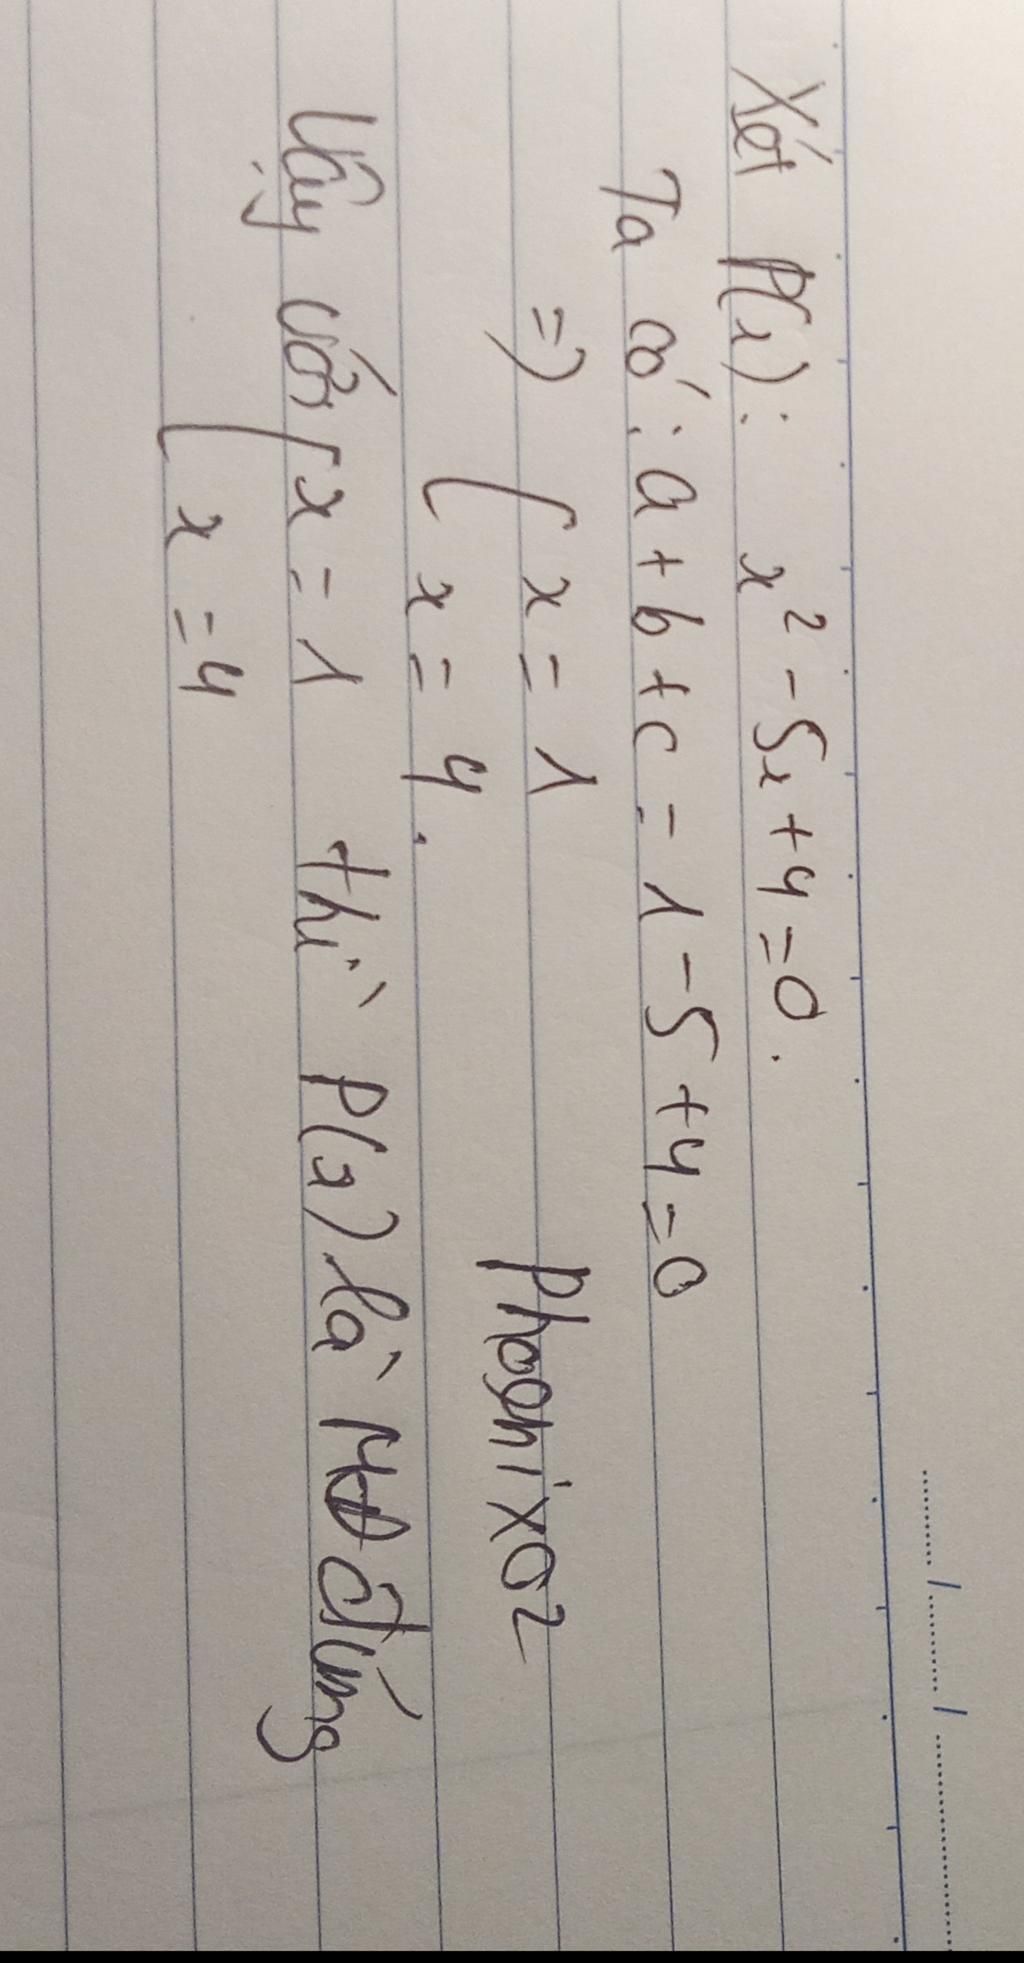 Xét P(x): x² - 5x + 4 = 0.
Ta có: a + b + c = 1 - 5 + 4 = 0
=> [ x = 1
x = 4.
Phoenix02
Vậy với [ x = 1 thì P(x) là MĐ đúng
x = 4